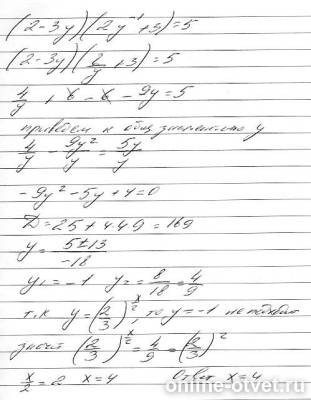 (2-3y)(2y⁻¹+3)=5
(2-3y)(2/y+3)=5
4/y+6-6-9y=5
приведем к общ знаменателю y
4/y - 9y²/y = 5y/y
-9y²-5y+4=0
D=25+4·4·9=169
y= (5±13)/-18
y₁=-1 y₂= 8/18 = 4/9
т.к y=(2/3)^(x/2), то y=-1 не подходит
значит (2/3)^(x/2) = 4/9 = (2/3)²
x/2=2 x=4 Ответ x=4
online-otvet.ru